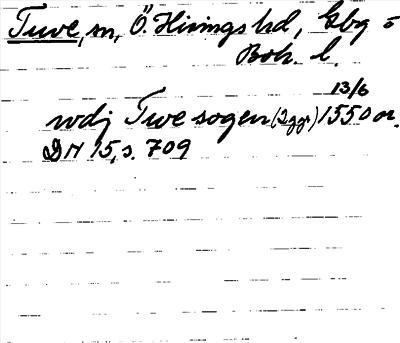 Tuve, sn, Ö. Hisings hd, Gbg o
Boh. l.
13/6
wdj Twe sogen (2 ggr) 1550 or.
DN 15, s. 709